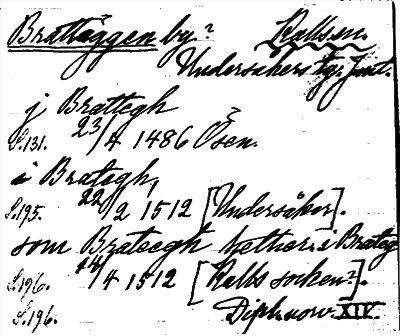 Brattäggen by? Kallsen.
Undersåkers tg. Jmt.
j Brattegh
S.131. 23/4 1486 Ösen.
i Brategh,
S.195. 22/2 1512 [Undersåker].
som Brateegh hether. i Brateg
S.196. 14/4 1512 [Kalls socken?].
S.196. Dipl. norv. XIV.